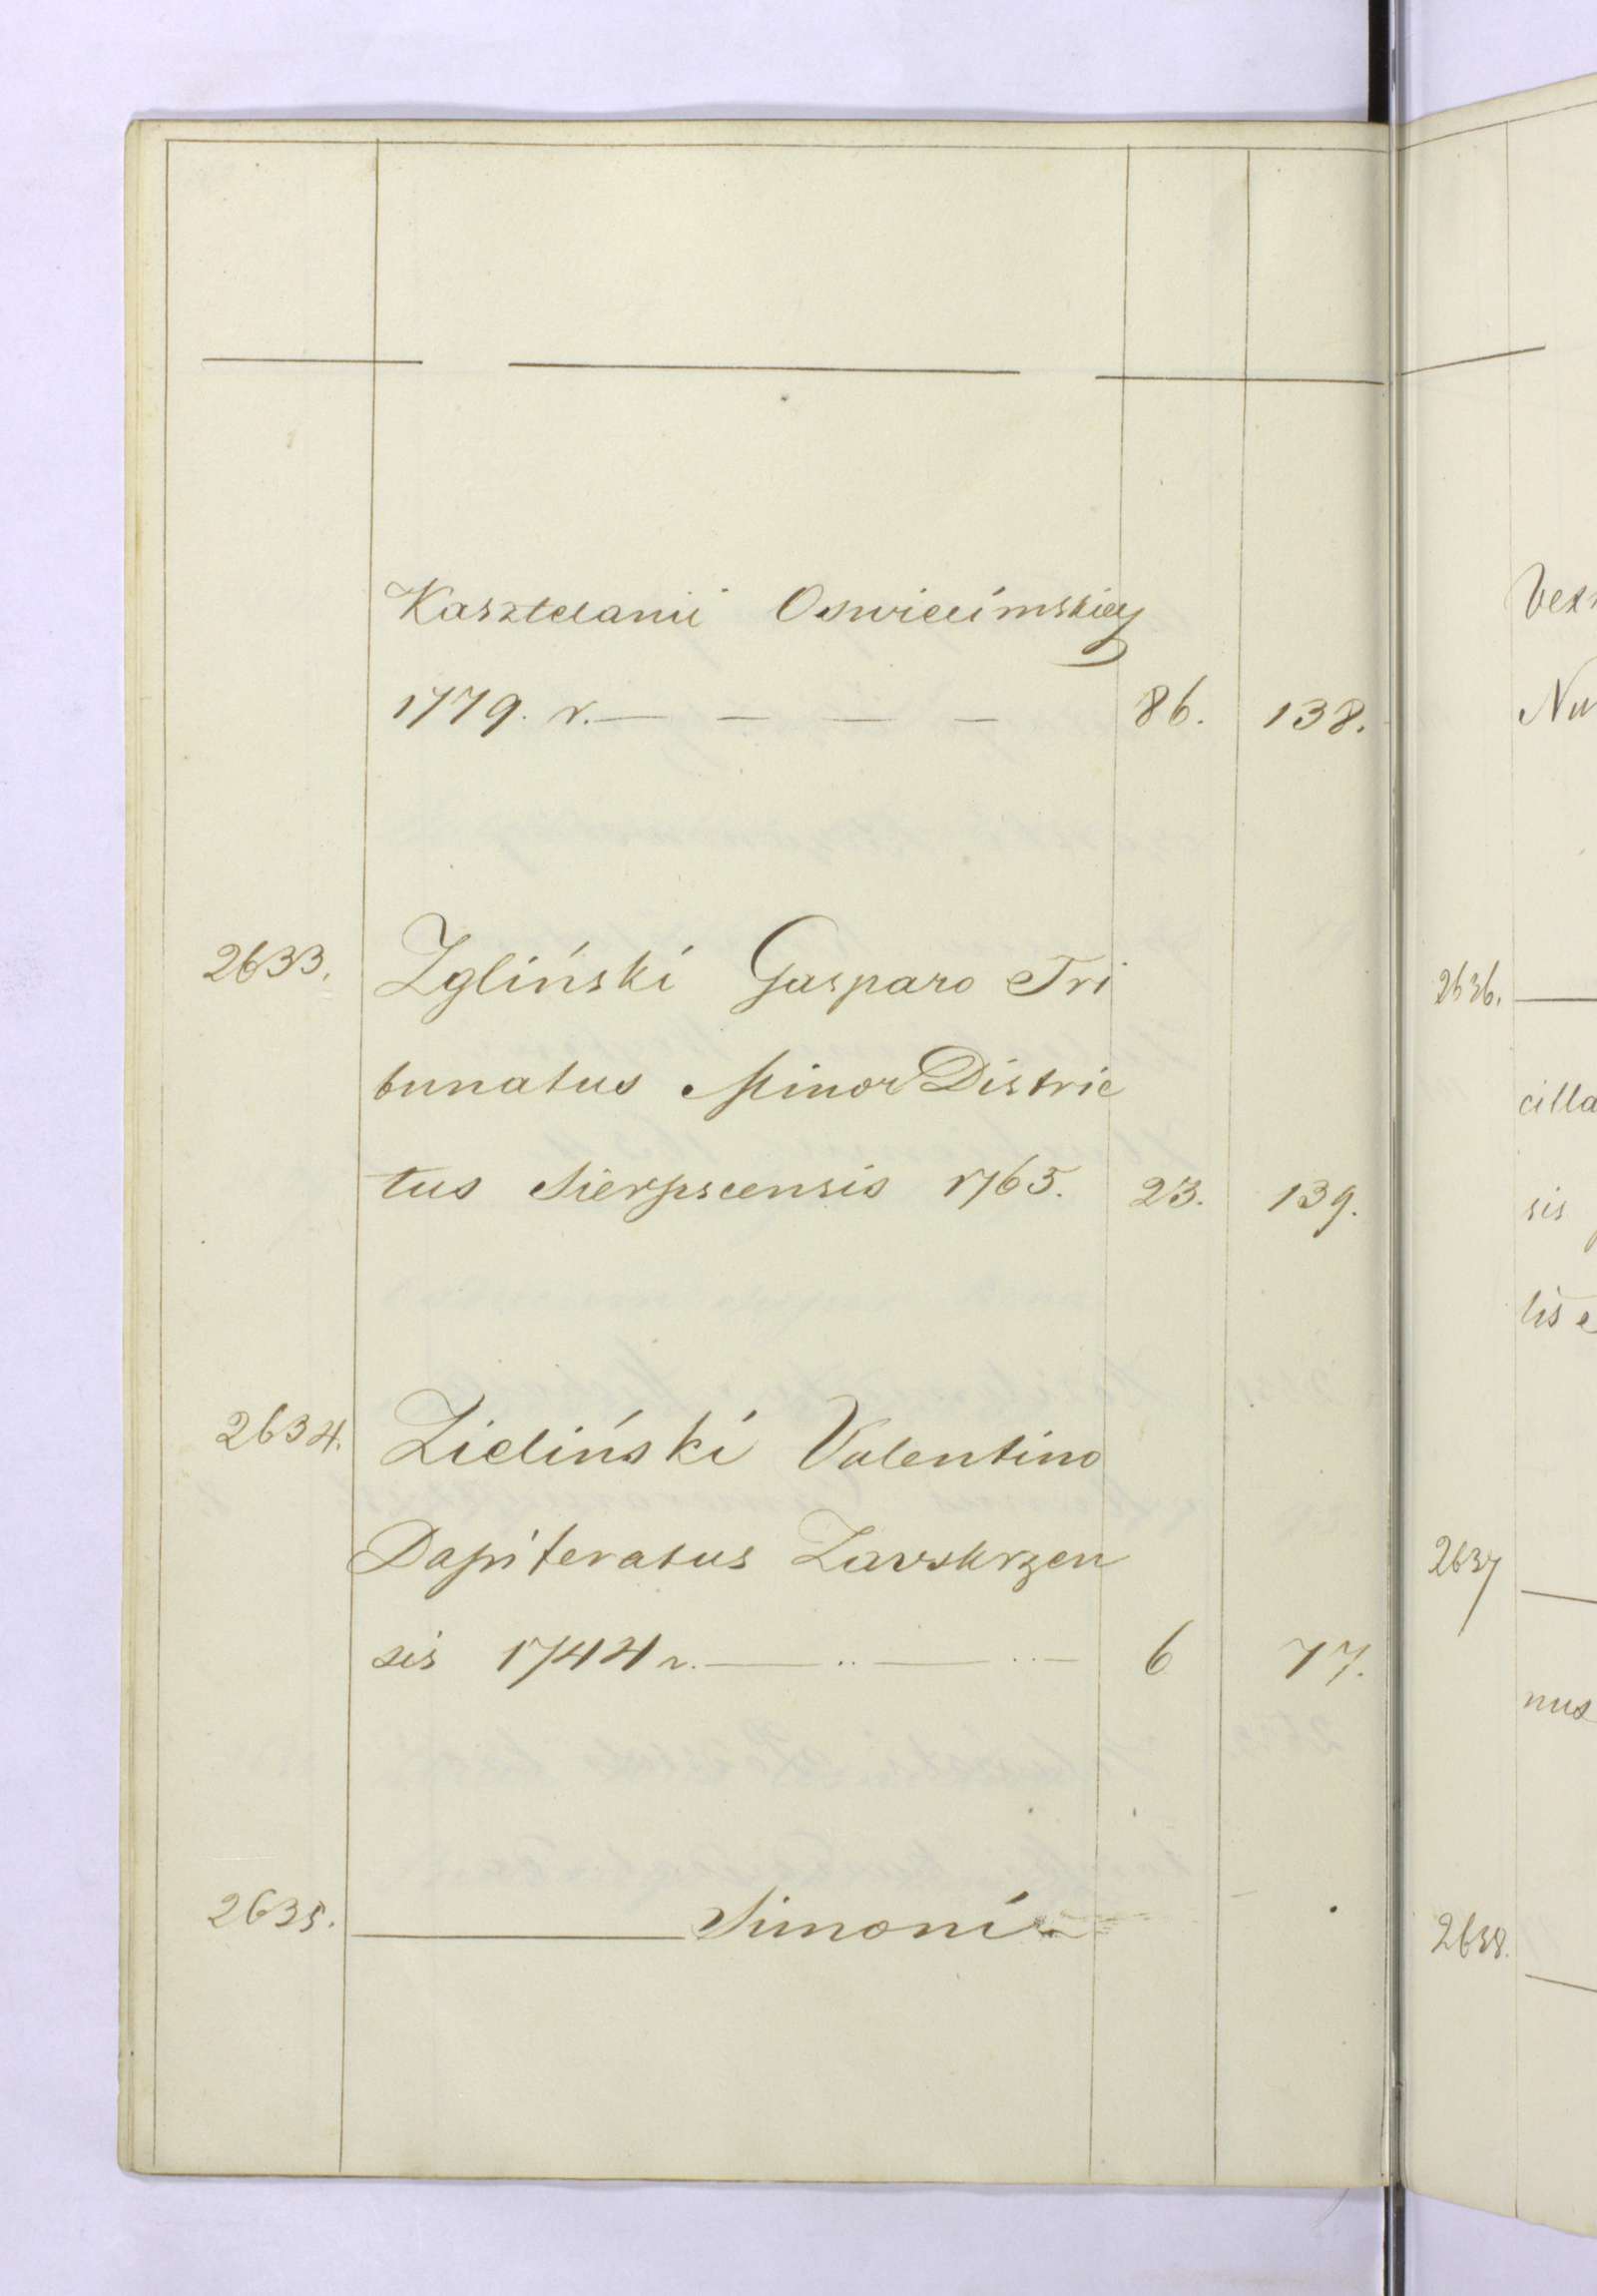 Kasztelanii Oswiecimskiey
1779. r. — — — — 86. 138.
2633. Zgliński Gasparo Tri
bunatus Minor Distric
tus Sierpscensis 1765. 23. 139.
2634. Zieliński Valentino
Dapiferatus Zawskrzen
sis 1744 r. — .. — ... — 6 77.
2635. ——— Simoni
2636.
cilla
sis
lis
2637
nus
2638.